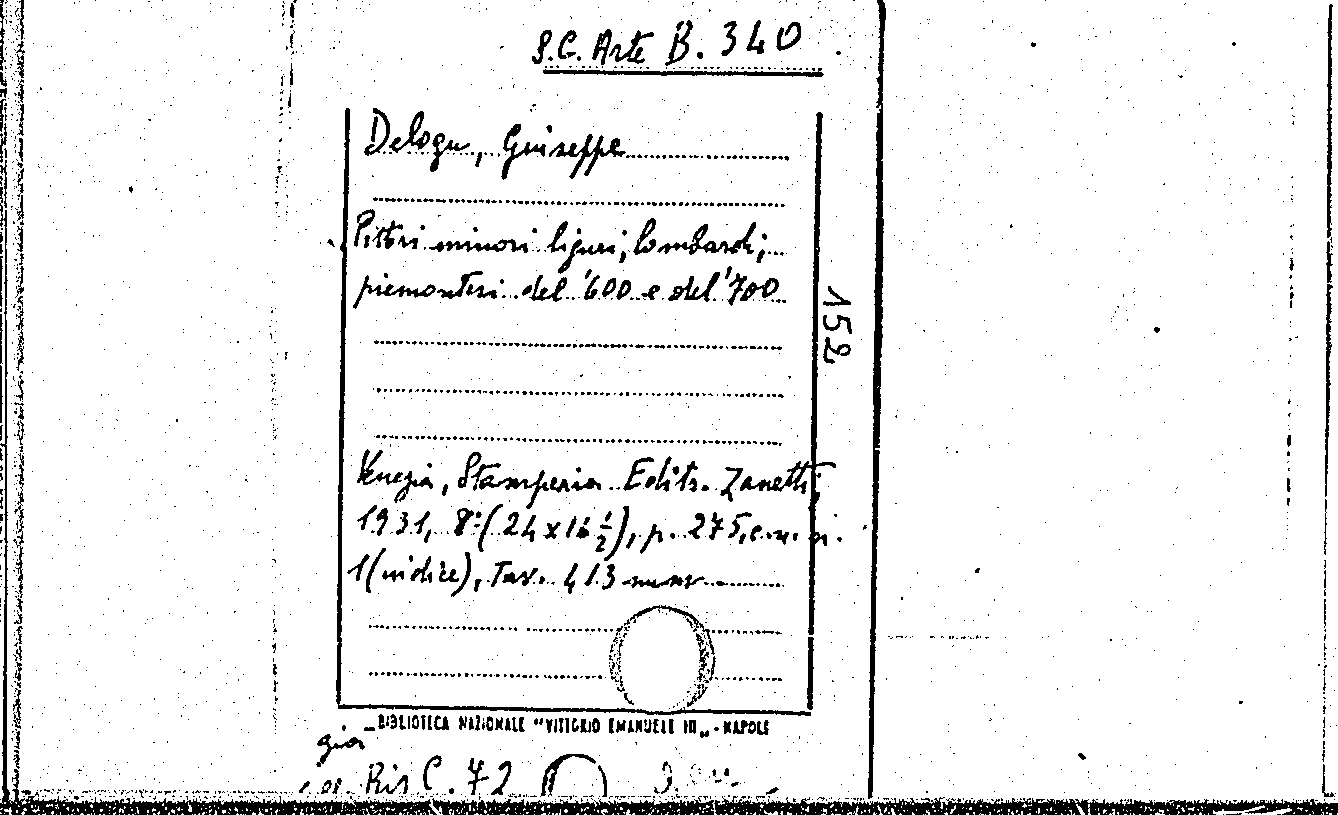 S.C. Arte B. 340
Delogu, Giuseppe
Pittori minori liguri, lombardi,
piemontesi del '600 e del '700
152
Venezia, Stamperia Editr. Zanetti,
1931, 8º (24 x 16 1/2), p. 275, c. n. n.
1 (indice), Tav. 413 num
BIBLIOTECA NAZIONALE "VITTORIO EMANUELE III„ - NAPOLI
già
Ris C. 72